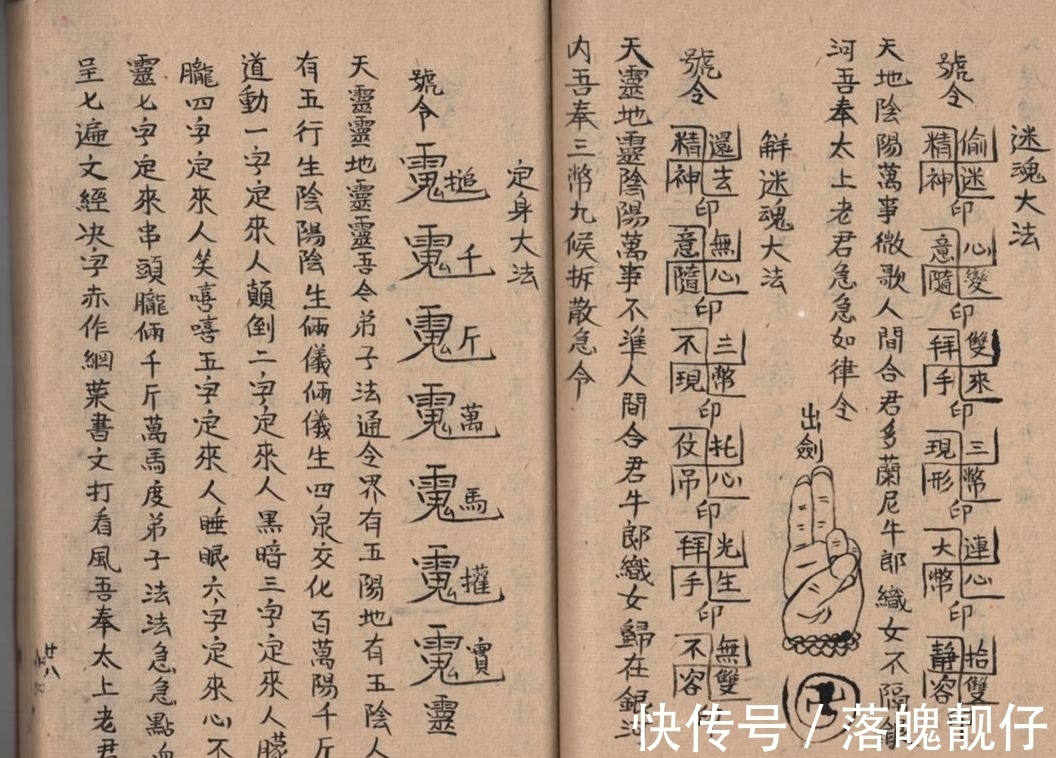 迷魂大法
號令 偷迷精神印 心變意隨印 雙來拜手印 三幣現形印 連心大幣印 拾雙靜容
天地陰陽萬事微歌人間合君多蘭尼牛郎織女不隔銀
河吾奉太上老君急急如律令
出劍
解迷魂大法
號令 還去精神印 無心意隨印 三幣不現印 托心仗吊印 光生拜手印 無雙不容
天靈地靈陰陽萬事不準人間合君牛郎織女歸在銀河
内吾奉三幣九候拆散急令
定身大法
號令 槌 千 斤 萬 馬 靈
天靈靈地靈靈吾令弟子法通令界有五陽地有五陰人
有五行生陰陽陰生倆儀倆儀生四泉交化百萬陽千斤
道動一字定來人顛倒二字定來人黑暗三字定來人朦
朧四字定來人笑嘻嘻五字定來人睡眠六字定來心不
靈七字定來串頭朧倆千斤萬馬度弟子法法急急點血
呈七遍文經决字赤作綱葉書文打看風吾奉太上老君
廿八
快传号/落魄靓仔